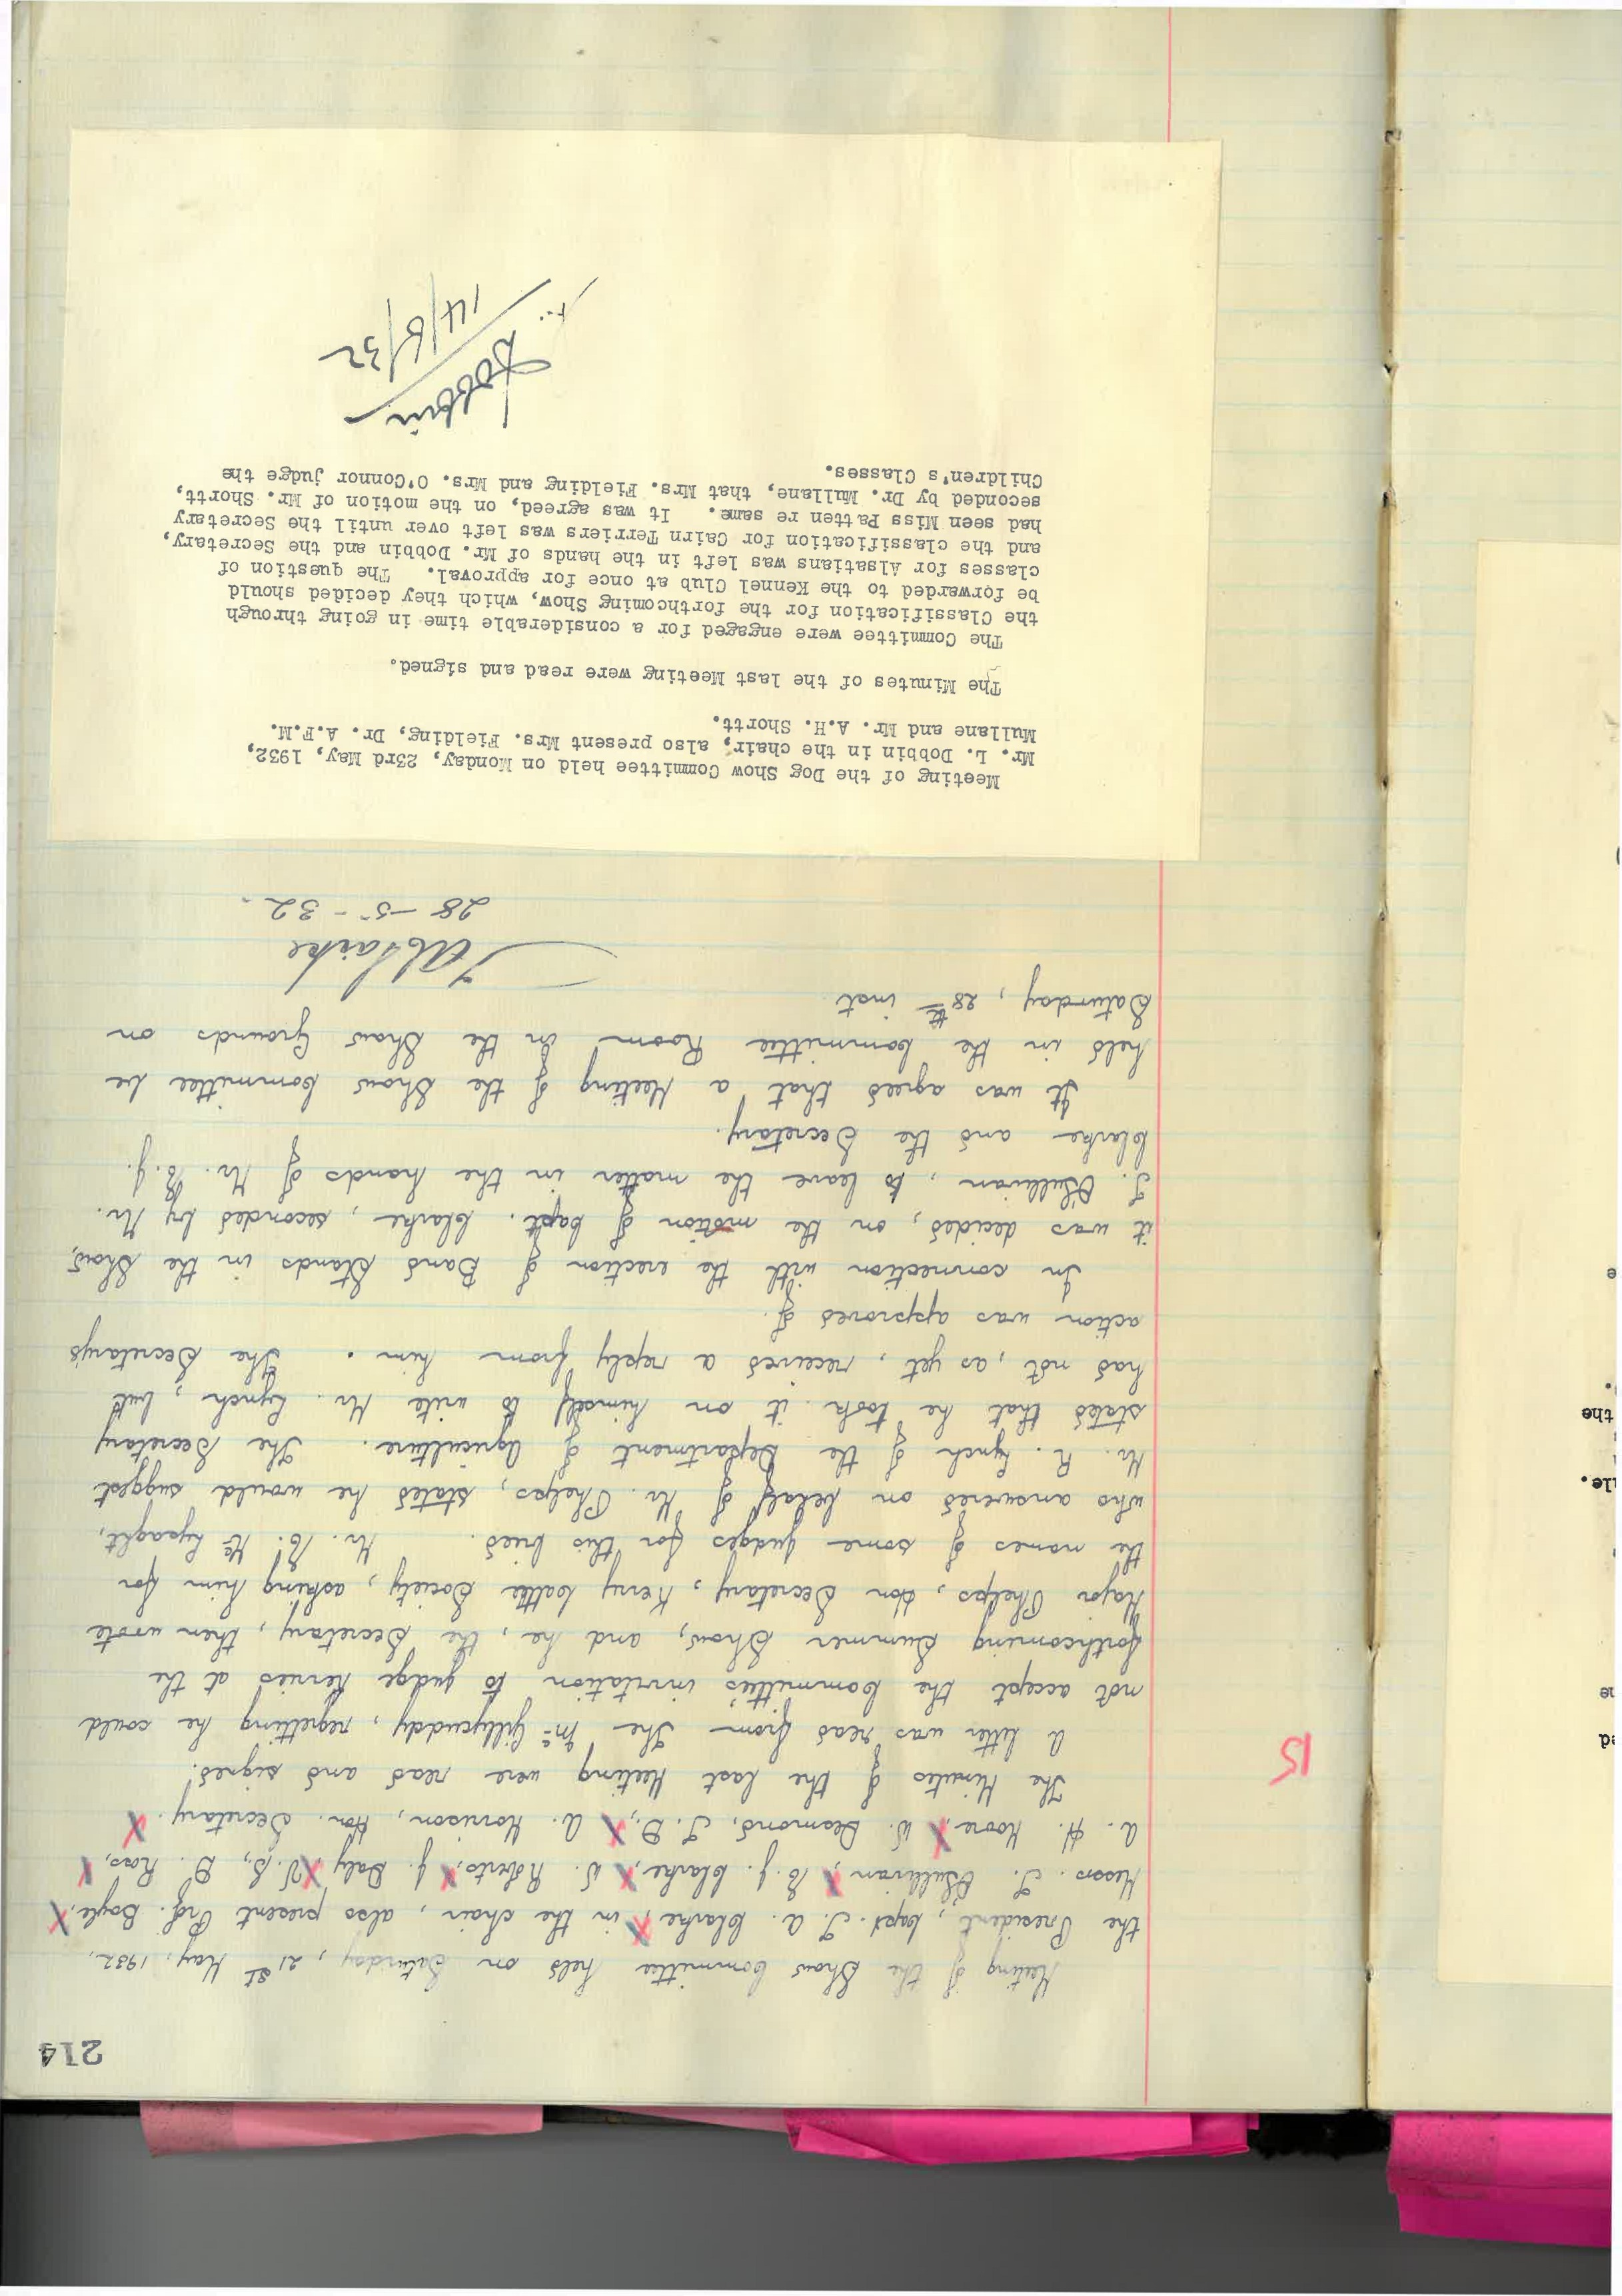 214
Meeting of the Show Committee held on Saturday, 21st May, 1932,
the President, Capt. T. A. Clarke, in the chair, also present Prof. Boyle,
Messrs. T. O'Sullivan, C. J. Clarke, W. Roberts, J. Daly, V.S., D. Ross,
A. H. Moore, W. Desmond, T.D., A. Morrison, Hon. Secretary.
15
The Minutes of the last Meeting were read and signed.
A letter was read from The McGillycuddy, regretting he could
not accept the Committee's invitation to judge Kerries at the
forthcoming Summer Show, and he, the Secretary, then wrote
Major Phelps, Hon Secretary, Kerry Cattle Society, asking him for
the names of some judges for this breed. Mr. C. McLysaght,
who answered on behalf of Mr. Phelps, stated he would suggest
Mr. R. Lynch of the Department of Agriculture. The Secretary
stated that he took it on himself to write Mr. Lynch, but
had not, as yet, received a reply from him. The Secretary's
action was approved of.
In connection with the erection of Band Stands in the Show,
it was decided, on the motion of Capt. Clarke, seconded by Mr.
T. O'Sullivan, to leave the matter in the hands of Mr. C. J.
Clarke and the Secretary.
It was agreed that a Meeting of the Show Committee be
held in the Committee Room in the Show Grounds on
Saturday, 28th inst
TAClarke
28-5-32.
Meeting of the Dog Show Committee held on Monday, 23rd May, 1932,
Mr. L. Dobbin in the chair, also present Mrs. Fielding, Dr. A.F.M.
Mullane and Mr. A.H. Shortt.
The Minutes of the last Meeting were read and signed.
The Committee were engaged for a considerable time in going through
the Classification for the forthcoming Show, which they decided should
be forwarded to the Kennel Club at once for approval. The question of
classes for Alsatians was left in the hands of Mr. Dobbin and the Secretary,
and the classification for Cairn Terriers was left over until the Secretary
had seen Miss Patten re same. It was agreed, on the motion of Mr. Shortt,
seconded by Dr. Mullane, that Mrs. Fielding and Mrs. O'Connor judge the
Children's Classes.
LDobbin
the